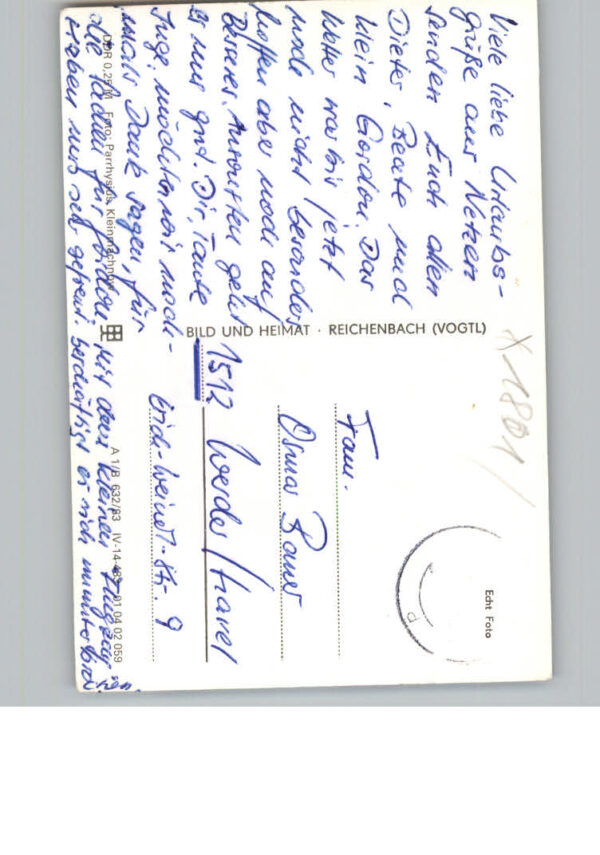 Viele liebe Urlaubs-
grüße aus Netzen
senden Euch allen
Dieter, Beate und
klein Gordon. Das
Wetter war bis jetzt
noch nicht besonders
hoffen aber noch auf
Besseres. Ansonsten geht
es uns gut. Dir, Tante
Inge, möchten wir noch-
mals Dank sagen, für
die für Gordon. Mit dem kleinen
haben uns sehr gefreut. er sich
DDR 0,25 M Foto: Parrhysius, Kleinmachnow
BILD UND HEIMAT · REICHENBACH (VOGTL)
A 1/B 632/83 IV-14-483 01 04 02 059
X1801/
Echt Foto
Fam.
Osmar Bauer
1512 Werder/Havel
Erich-Weinert-Str. 9